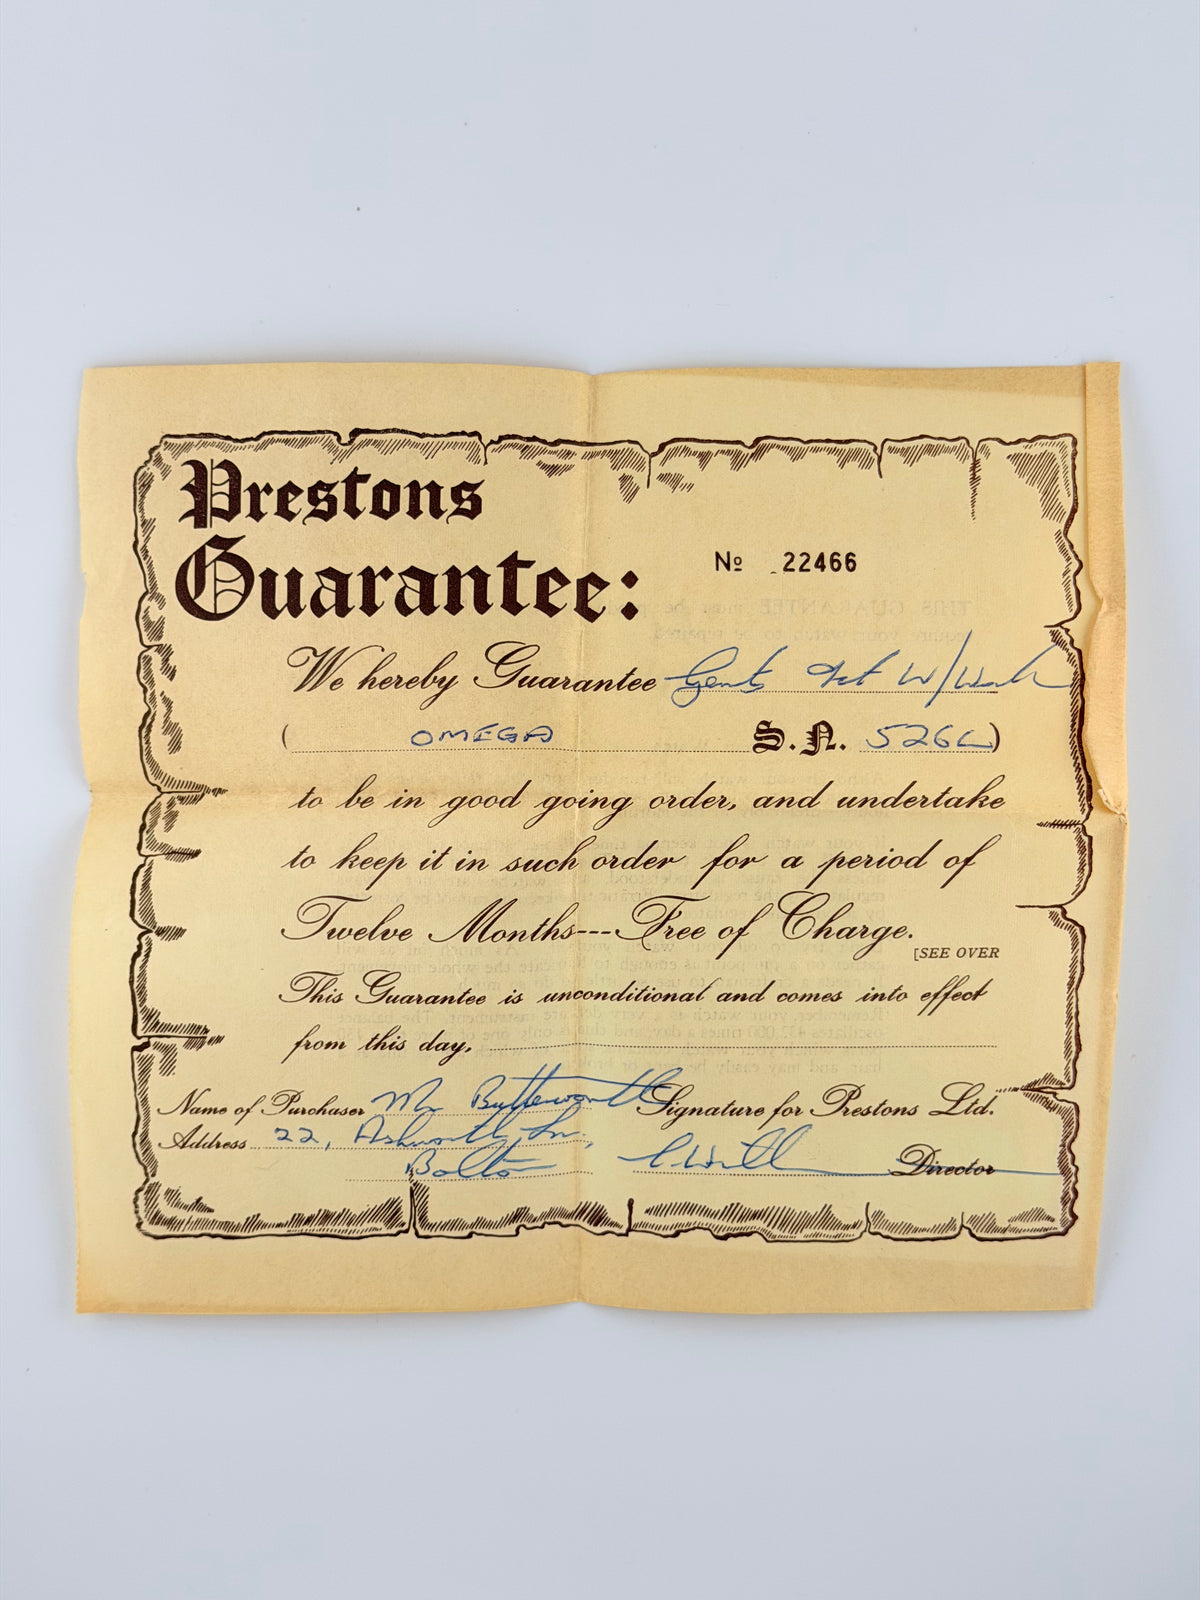 Prestons
Guarantee:
No 22466
We hereby Guarantee Gents W/Watch
( OMEGA S.N. 526 )
to be in good going order, and undertake
to keep it in such order for a period of
Twelve Months---Free of Charge.
[SEE OVER
This Guarantee is unconditional and comes into effect
from this day,
Name of Purchaser Mr Butterworth Signature for Prestons Ltd.
Address 22, Ashworth Ln,
Bolton Director